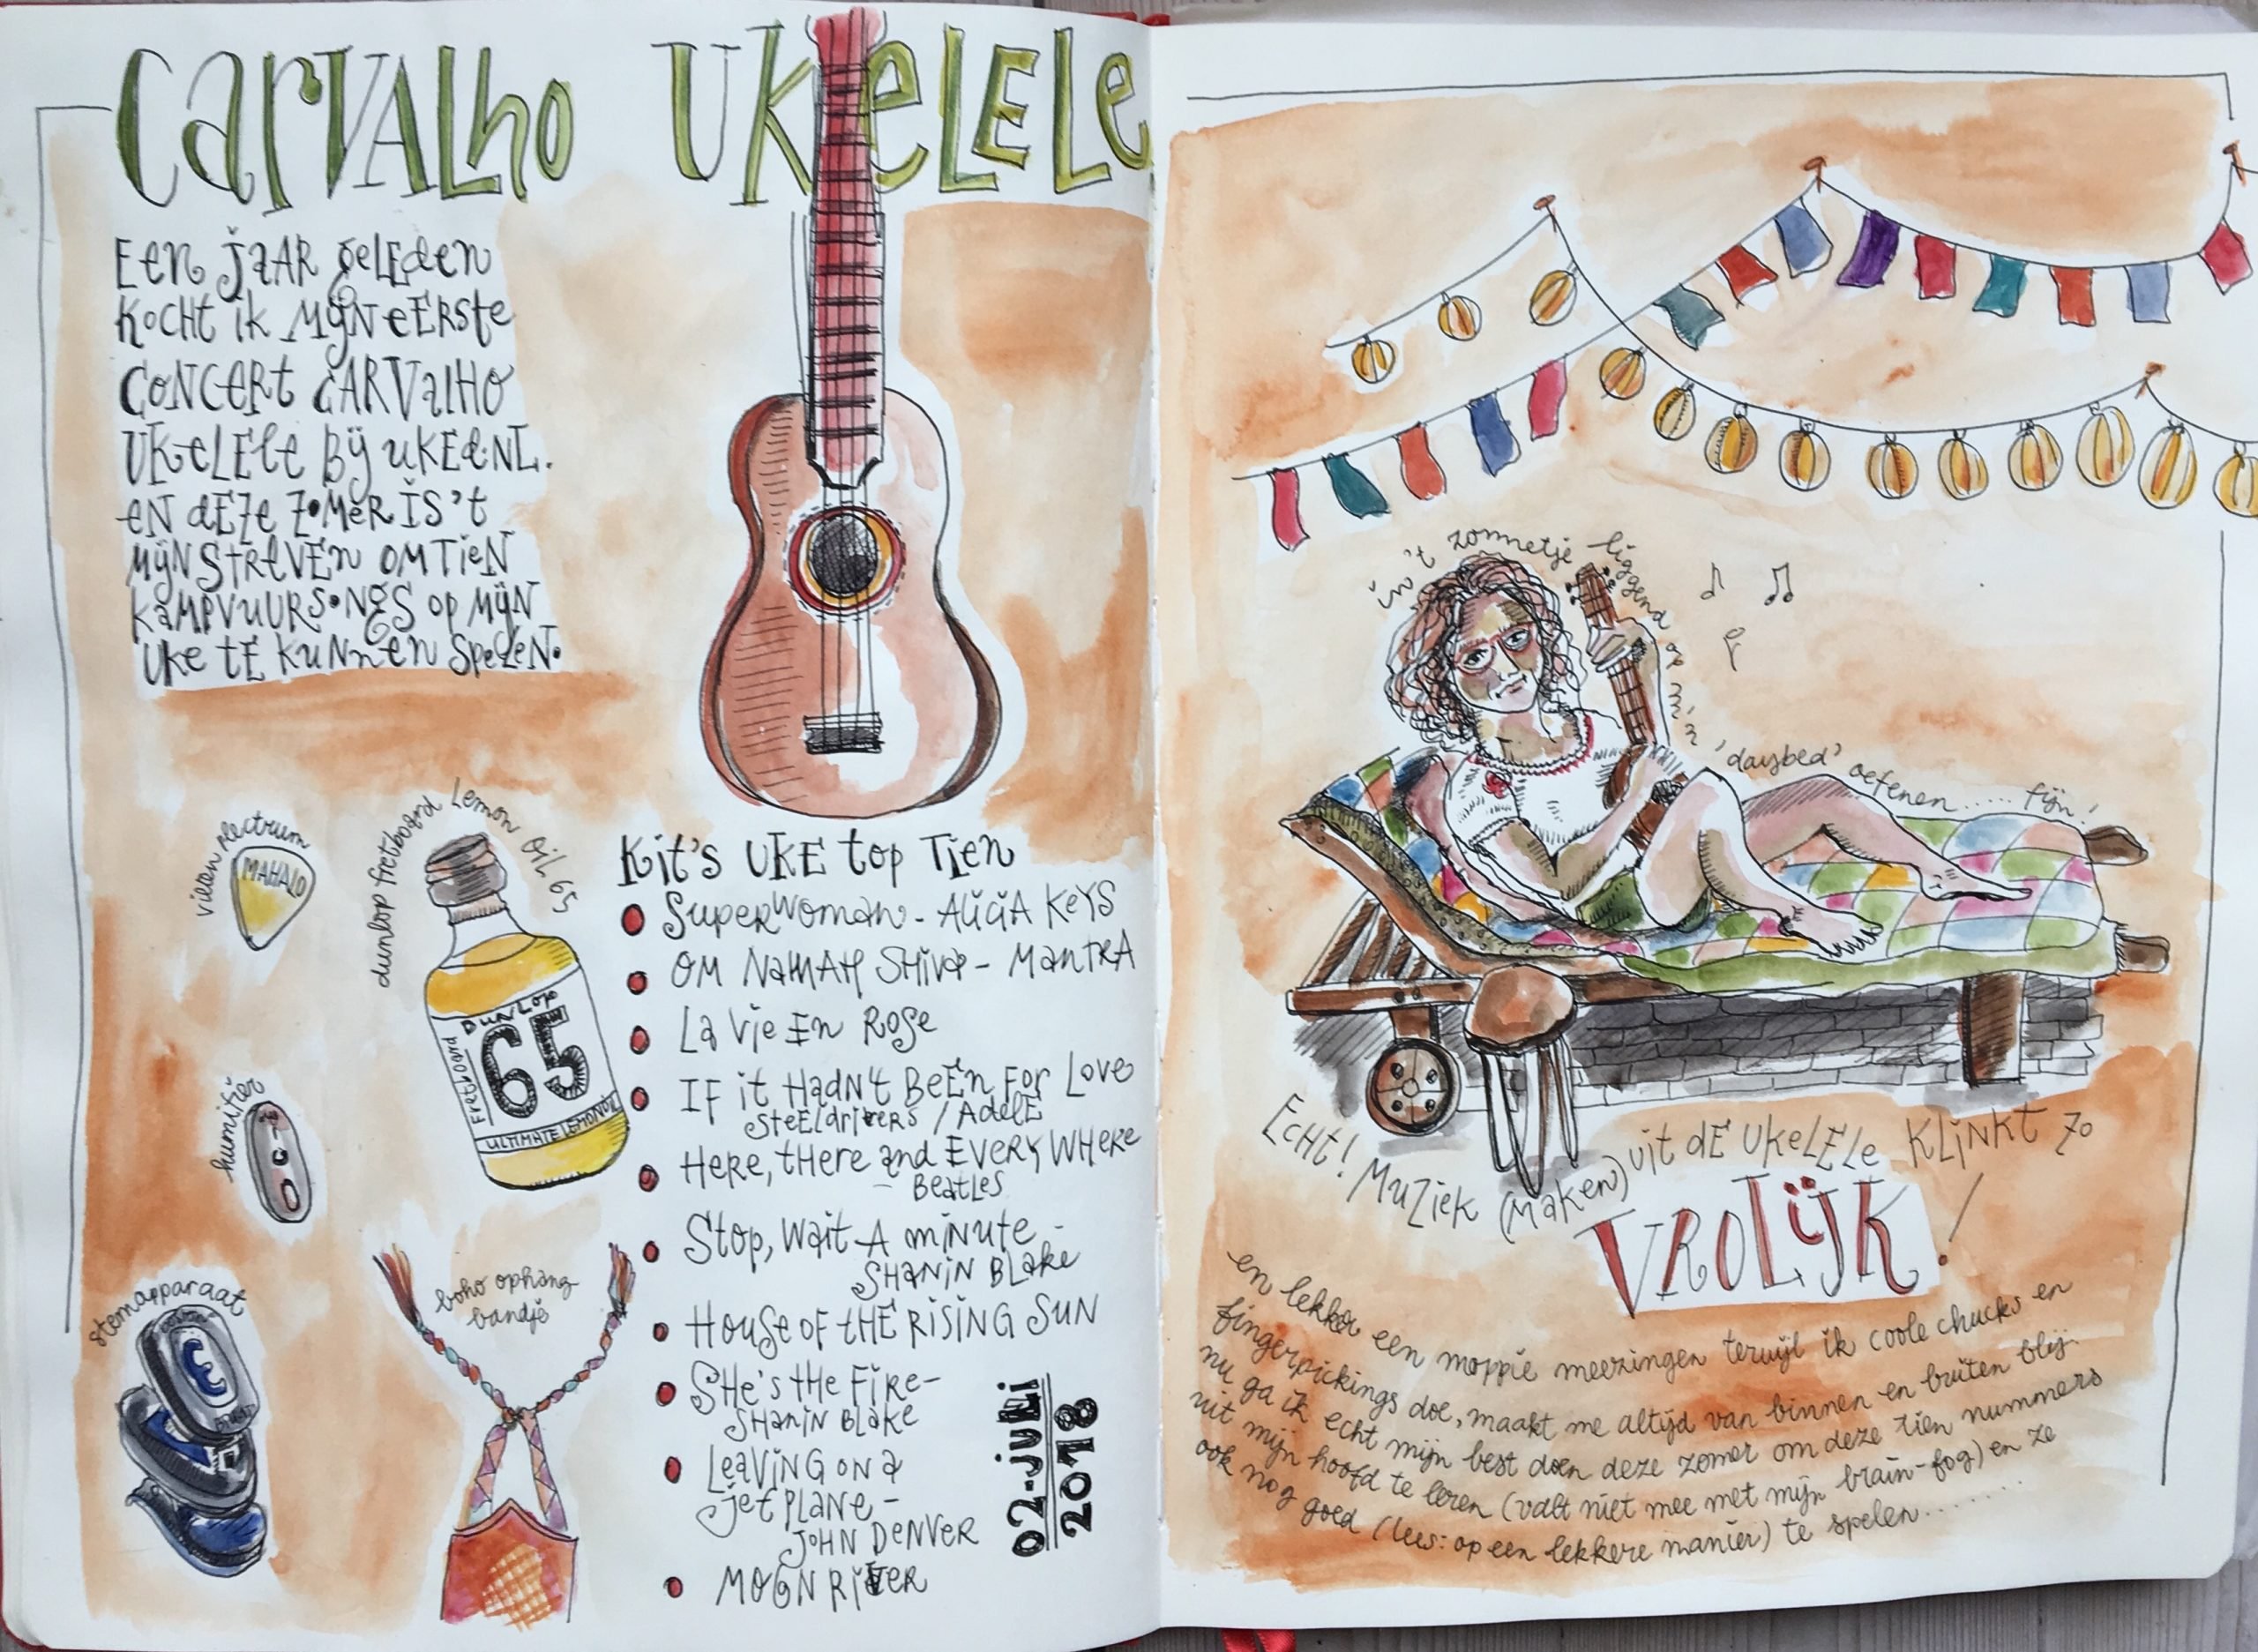 Carvalho Ukelele
Een jaar geleden
kocht ik mijn eerste
concert Carvalho
ukelele bij uked.nl.
en deze zomer is 't
mijn streven om tien
kampvuursongs op mijn
uke te kunnen spelen.
vilten plectrum
MAHALO
dunlop fretboard Lemon Oil 65
Dunlop
65
Fretboard
ULTIMATE LEMON OIL
humifier
stemapparaat
boho ophang
bandje
Kit's UKE top Tien
Superwoman - Alicia Keys
Om Namah Shiva - Mantra
La Vie En Rose
If it Hadn't Been For Love
Steeldrivers / Adele
Here, there and Everywhere
- Beatles
Stop, Wait A minute -
Shanin Blake
House of the Rising Sun
She's the Fire -
Shanin Blake
Leaving on a
jet plane -
John Denver
Moon River
02-juli
2018
in 't zonnetje liggend op m'n 'daybed' oefenen...... fijn!
Echt! Muziek (maken) uit de ukelele klinkt zo
VROLIJK!
en lekker een moppie meezingen terwijl ik coole chucks en
fingerpickings doe, maakt me altijd van binnen en buiten blij.
nu ga ik echt mijn best doen deze zomer om deze tien nummers
uit mijn hoofd te leren (valt niet mee met mijn brain-fog) en ze
ook nog goed (lees: op een lekkere manier) te spelen........